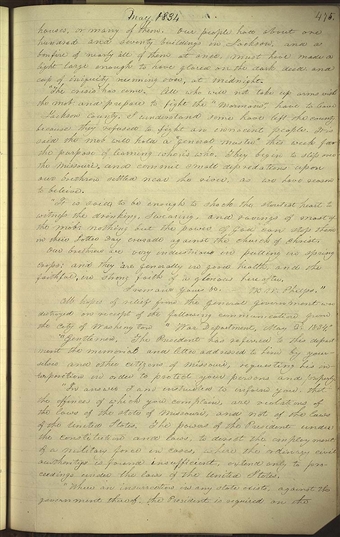 May, 1834
475.
houses, or many of them. Our people had about one
hundred and seventy buildings in Jackson, and a
bonfire of nearly all of them at once, must have made a
light large enough to have glared on the dark deed and
cup of iniquity running over, at midnight.
"The crisis has come." All who will not take up arms with
the mob and prepare to fight the "Mormons," have to leave
Jackson County. I understand some have left the county
because they refused to fight an innocent people. It is
said the mob will hold a "general muster" this week for
the purpose of learning who is who. They begin to slip over
the Missouri, and commit small depredations upon
our brethren settled near the river, as we have reason
to believe.
"It is said to be enough to shock the stoutest heart to
witness the drinking, swearing, and ravings of most of
the mob: nothing but the power of God can stop them
in their latter day crusade against the church of Christ.
Our brethren are very industrious in putting in spring
crops: and they are generally in good health, and the
faithful, in strong faith of a glorious hereafter.
I remain yours &c. W. W. Phelps."
All hopes of relief from the General government
destroyed on receipt of the following communication from
the City of Washington. "War Department, May 2, 1834."
"Gentlemen, The President has referred to this depart-
ment the memorial and letter addressed to him by your-
selves and other citizens of Missouri, requesting his in-
terposition in order to protect your persons and property.
"In answer I am instructed to inform you, that
the offences of which you complain, are violations of
the laws of the state of Missouri, and not of the laws
of the United States. The powers of the President under
the constitution and laws, to direct the employment
of a military force in cases, where the ordinary civil
authority is found insufficient, extend only to pro-
ceedings under the laws of the United States.
"Where an insurrection in any state exists, against the
government thereof, the President is required on the